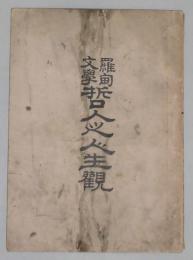 羅甸
文學
哲人之人生觀